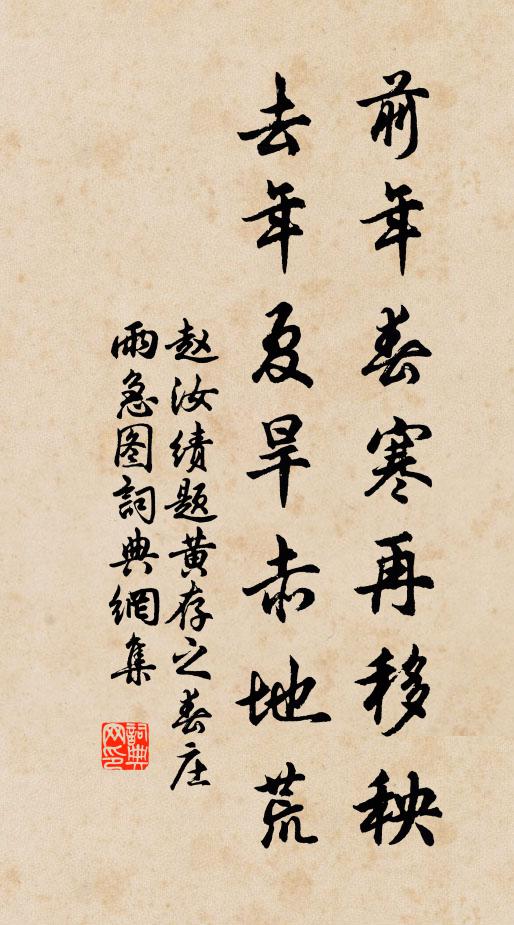 前年春寒再移秧
去年夏旱赤地荒
赵汝绩题黄存之春庄
雨急图詞典網集
詞典网印